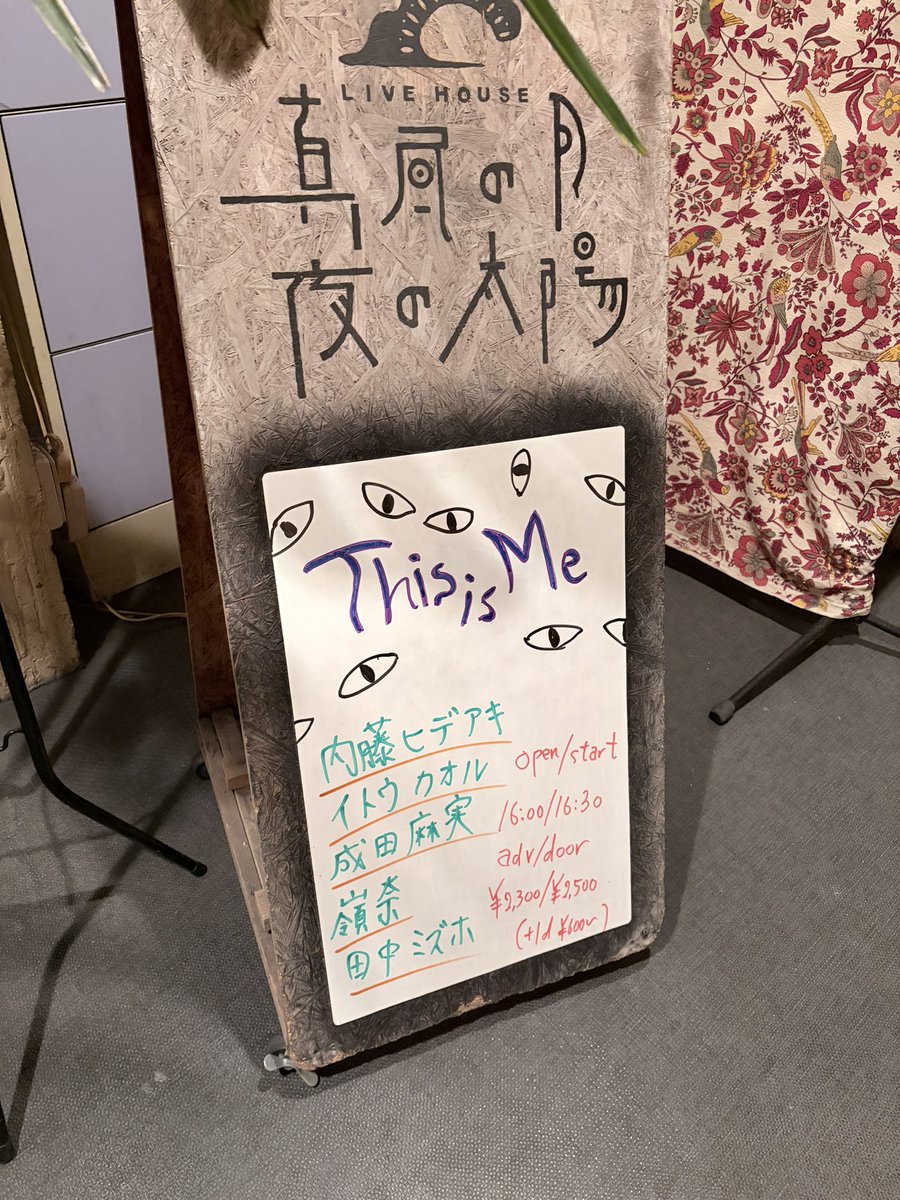 LIVE HOUSE
真昼の月
夜の太陽
This is Me
内藤ヒデアキ
イトウカオル
成田麻実
嶺奈
田中ミズホ
open/start
16:00/16:30
adv/door
¥2,300/¥2,500
(+1d ¥600~)